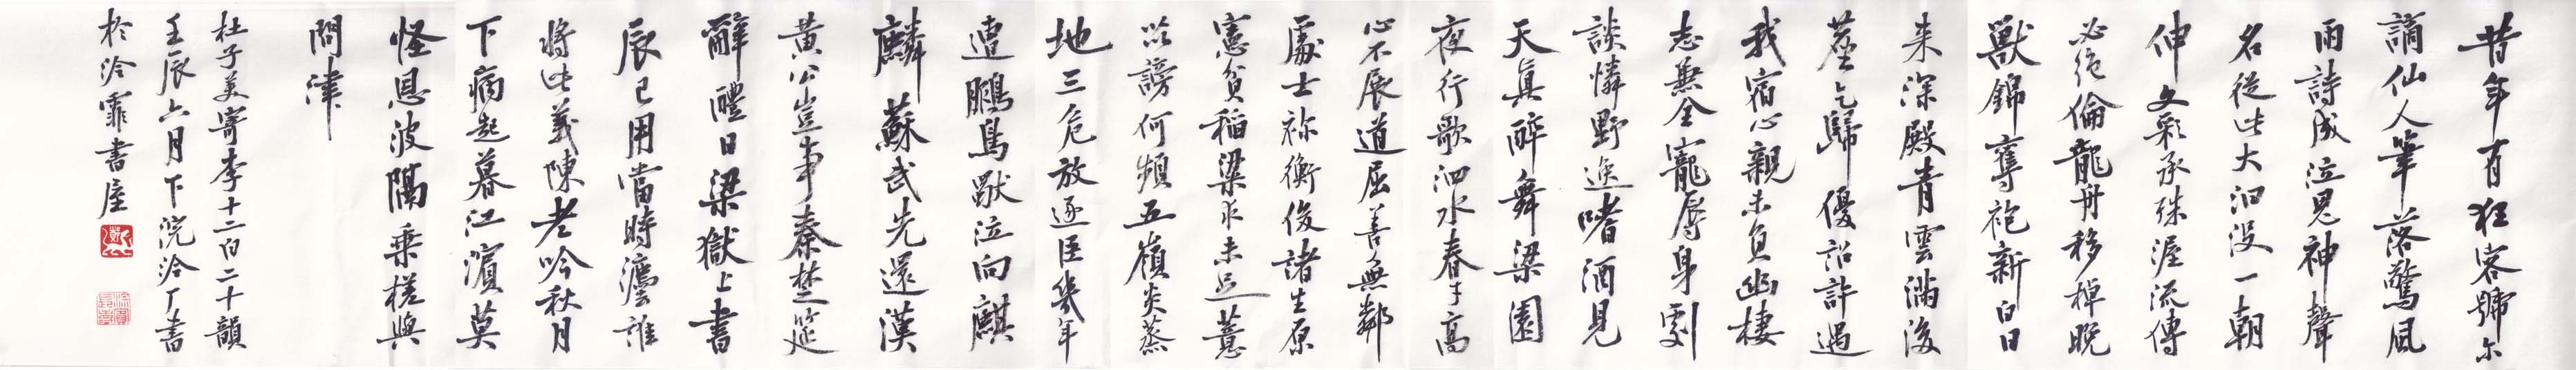 昔年有狂客號尔
謫仙人筆落驚風
雨詩成泣鬼神聲
名從此大汩沒一朝
伸文彩承殊渥流傳
必絕倫龍舟移棹晚
獸錦奪袍新白日
来深殿青雲滿後
塵乞歸優詔許遇
我宿心親未負幽棲
志兼全寵辱身劇
談憐野逸嗜酒見
天真醉舞梁園
夜行歌泗水春才高
心不展道屈善無鄰
處士祢衡俊諸生原
憲貧稻粱求未足薏
苡謗何頻五嶺炎蒸
地三危放逐臣幾年
遭鵩鳥獨泣向麒
麟蘇武先還漢
黃公豈事秦楚筵
辭醴日梁獄上書
辰已用當時法誰
將此義陳老吟秋月
下病起暮江濱莫
怪恩波隔乘槎與
問津
杜子美寄李十二白二十韻
壬辰六月下浣泠丁書
於泠霏書屋